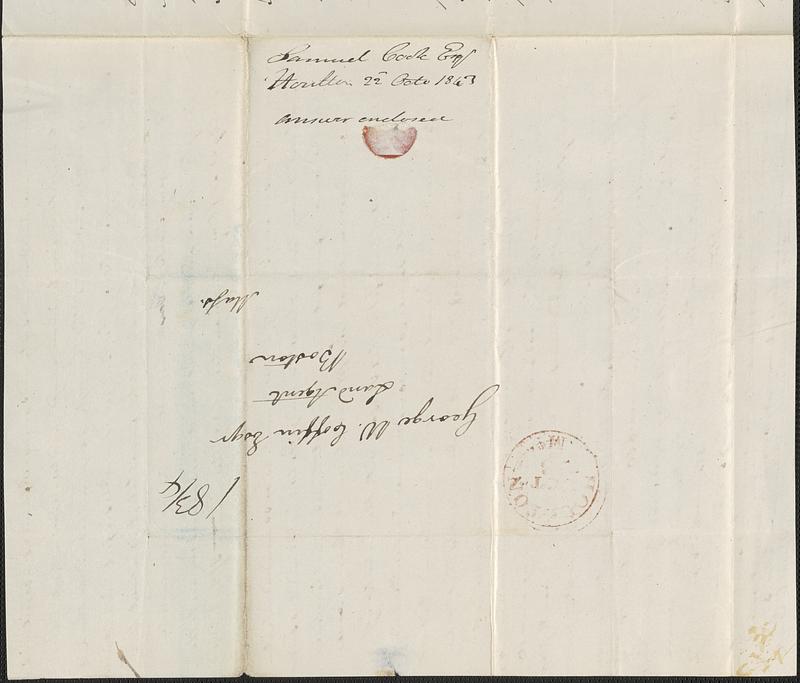 Samuel Cook Esq
Houlton 22 Octo 1843
answer enclosed
George W. Coffin Esqr
Land Agent
Boston
Mass.
18 3/4
HOULTON
OCT
Me.